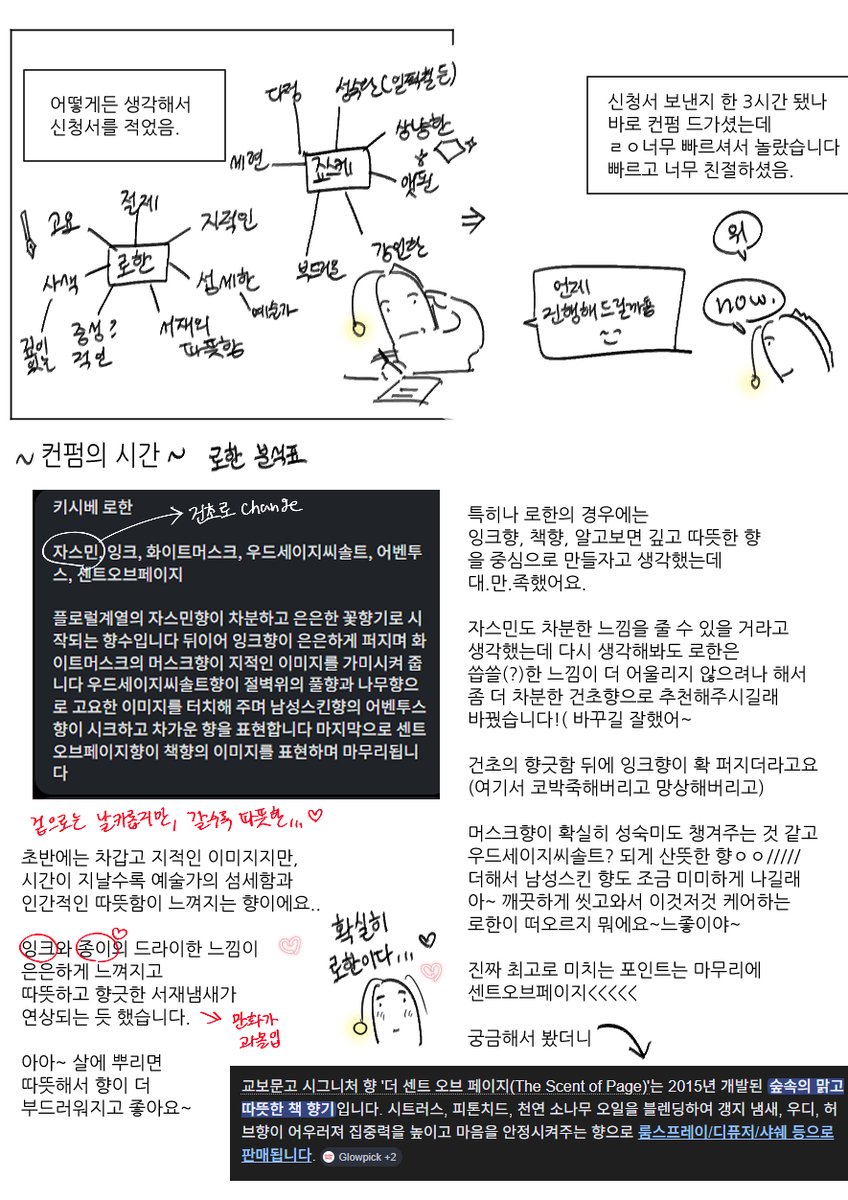 어떻게든 생각해서
신청서를 적었음.
다정
성숙한(일찍철든)
상냥한
햇빛
세련
죠스케
부드러운
강인한
절제
고요
지적인
로한
사색
섬세한
예술가
깊이
있는
중성?
적인
서재의
따뜻함
⇒
신청서 보낸지 한 3시간 됐나
바로 컨펌 드가셨는데
ㄹㅇ너무 빠르셔서 놀랐습니다
빠르고 너무 친절하셨음.
워
now.
언제
진행해드릴까용
~컨펌의 시간~ 로한 분석표
키시베 로한
건초로 change
자스민, 잉크, 화이트머스크, 우드세이지씨솔트, 어벤투
스, 센트오브페이지
플로럴계열의 자스민향이 차분하고 은은한 꽃향기로 시
작되는 향수입니다 뒤이어 잉크향이 은은하게 퍼지며 화
이트머스크의 머스크향이 지적인 이미지를 가미시켜 줍
니다 우드세이지씨솔트향이 절벽위의 풀향과 나무향으
로 고요한 이미지를 터치해 주며 남성스킨향의 어벤투스
향이 시크하고 차가운 향을 표현합니다 마지막으로 센트
오브페이지향이 책향의 이미지를 표현하며 마무리됩니
다
겉으로는 날카롭지만, 갈수록 따뜻한,,, ♡
초반에는 차갑고 지적인 이미지지만,
시간이 지날수록 예술가의 섬세함과
인간적인 따뜻함이 느껴지는 향이에요..
잉크와 종이의 드라이한 느낌이
은은하게 느껴지고
따뜻하고 향긋한 서재냄새가
연상되는 듯 했습니다.
만화가
과몰입
아아~ 살에 뿌리면
따뜻해서 향이 더
부드러워지고 좋아요~
확실히
로한이다...
특히나 로한의 경우에는
잉크향, 책향, 알고보면 깊고 따뜻한 향
을 중심으로 만들자고 생각했는데
대.만.족했어요.
자스민도 차분한 느낌을 줄 수 있을 거라고
생각했는데 다시 생각해봐도 로한은
씁쓸(?)한 느낌이 더 어울리지 않으려나 해서
좀 더 차분한 건초향으로 추천해주시길래
바꿨습니다!( 바꾸길 잘했어~
건초의 향긋함 뒤에 잉크향이 확 퍼지더라고요
(여기서 코박죽해버리고 망상해버리고)
머스크향이 확실히 성숙미도 챙겨주는 것 같고
우드세이지씨솔트? 되게 산뜻한 향ㅇㅇ/////
더해서 남성스킨 향도 조금 미미하게 나길래
아~ 깨끗하게 씻고와서 이것저것 케어하는
로한이 떠오르지 뭐에요~느좋이야~
진짜 최고로 미치는 포인트는 마무리에
센트오브페이지<<<<<
궁금해서 봤더니
교보문고 시그니처 향 '더 센트 오브 페이지(The Scent of Page)'는 2015년 개발된 숲속의 맑고
따뜻한 책 향기입니다. 시트러스, 피톤치드, 천연 소나무 오일을 블렌딩하여 갱지 냄새, 우디, 허
브향이 어우러져 집중력을 높이고 마음을 안정시켜주는 향으로 룸스프레이/디퓨저/샤쉐 등으로
판매됩니다. Glowpick +2